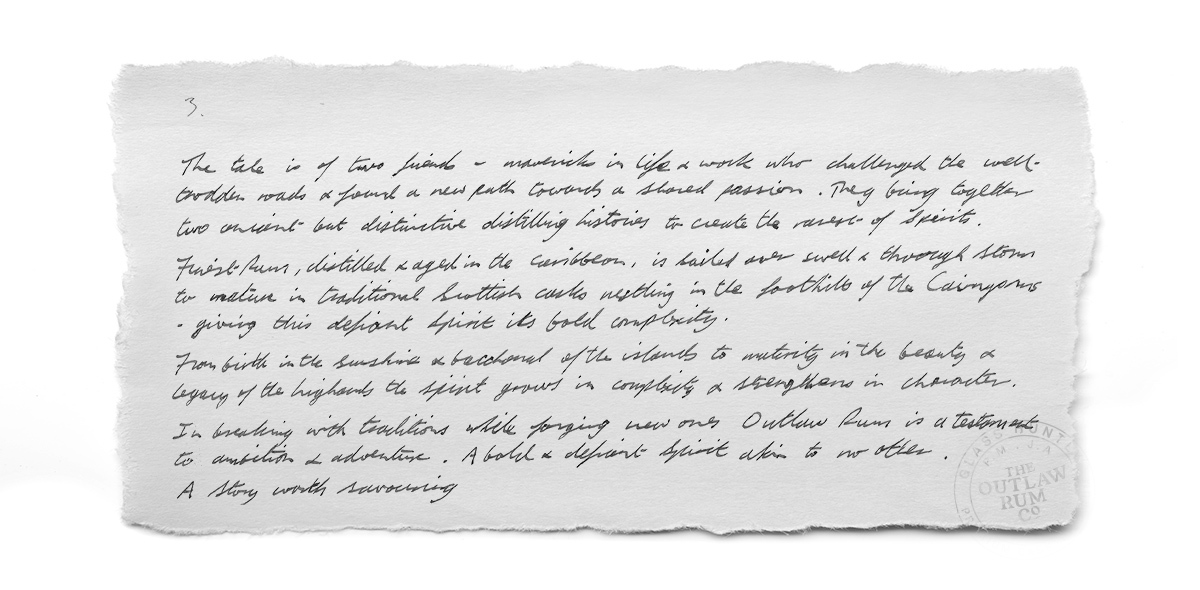 3.
The tale is of two friends - mavericks in life & work who challenged the well-
trodden roads & found a new path towards a shared passion. They bring together
two ancient but distinctive distilling histories to create the rarest of spirits.
Finest Rum, distilled & aged in the Caribbean, is sailed over swell & through storm
to mature in traditional Scottish casks nestling in the foothills of the Cairngorms
- giving this defiant spirit its bold complexity.
From birth in the sunshine & bacchanal of the islands to maturity in the beauty &
legacy of the highlands the spirit grows in complexity & strengthens in character.
In breaking with traditions while forging new ones Outlaw Rum is a testament
to ambition & adventure. A bold & defiant spirit akin to no other.
A story worth savouring
THE
OUTLAW
RUM
Co